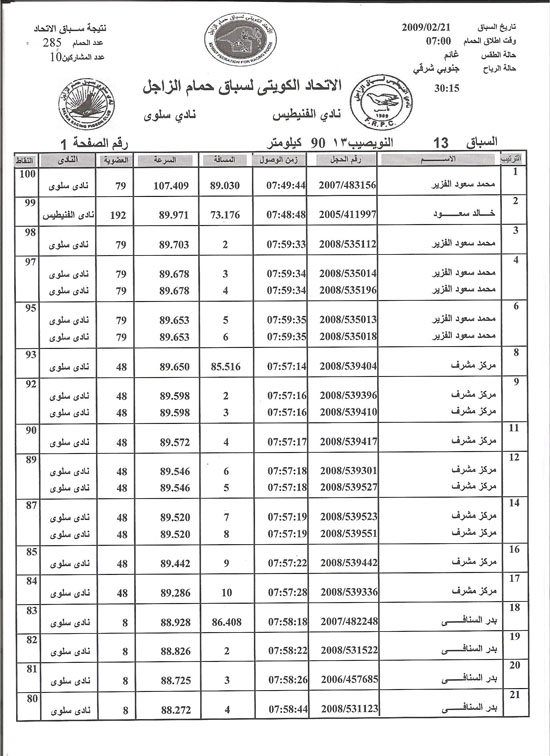 تاريخ السباق 2009/02/21
وقت اطلاق الحمام 07:00
حالة الطقس غائم
حالة الرياح جنوبي شرقي
30:15
نتيجة سباق الاتحاد
عدد الحمام 285
عدد المشاركين 10
الاتحاد الكويتى لسباق حمام الزاجل
نادي الفنيطيس نادي سلوى
F.R.P.C.
السباق 13 النويصيب١٣ 90 كيلومتر رقم الصفحة 1
الترتيب الاســـم رقم الحجل زمن الوصول المسافة السرعة العضوية النادى النقاط
1 محمد سعود الفزير 2007/483156 07:49:44 89.030 107.409 79 نادى سلوى 100
2 خـــالد سعـــود 2005/411997 07:48:48 73.176 89.971 192 نادى الفنيطيس 99
3 محمد سعود الفزير 2008/535112 07:59:33 2 89.703 79 نادى سلوى 98
4 محمد سعود الفزير 2008/535014 07:59:34 3 89.678 79 نادى سلوى 97
محمد سعود الفزير 2008/535196 07:59:34 4 89.678 79 نادى سلوى
6 محمد سعود الفزير 2008/535013 07:59:35 5 89.653 79 نادى سلوى 95
محمد سعود الفزير 2008/535018 07:59:35 6 89.653 79 نادى سلوى
8 مركز مشرف 2008/539404 07:57:14 85.516 89.650 48 نادى سلوى 93
9 مركز مشرف 2008/539396 07:57:16 2 89.598 48 نادى سلوى 92
مركز مشرف 2008/539410 07:57:16 3 89.598 48 نادى سلوى
11 مركز مشرف 2008/539417 07:57:17 4 89.572 48 نادى سلوى 90
12 مركز مشرف 2008/539301 07:57:18 6 89.546 48 نادى سلوى 89
مركز مشرف 2008/539527 07:57:18 5 89.546 48 نادى سلوى
14 مركز مشرف 2008/539523 07:57:19 7 89.520 48 نادى سلوى 87
مركز مشرف 2008/539551 07:57:19 8 89.520 48 نادى سلوى
16 مركز مشرف 2008/539442 07:57:22 9 89.442 48 نادى سلوى 85
17 مركز مشرف 2008/539336 07:57:28 10 89.286 48 نادى سلوى 84
18 بدر السنافـــى 2007/482248 07:58:18 86.408 88.928 8 نادى سلوى 83
19 بدر السنافـــى 2008/531522 07:58:22 2 88.826 8 نادى سلوى 82
20 بدر السنافـــى 2006/457685 07:58:26 3 88.725 8 نادى سلوى 81
21 بدر السنافـــى 2008/531123 07:58:44 4 88.272 8 نادى سلوى 80